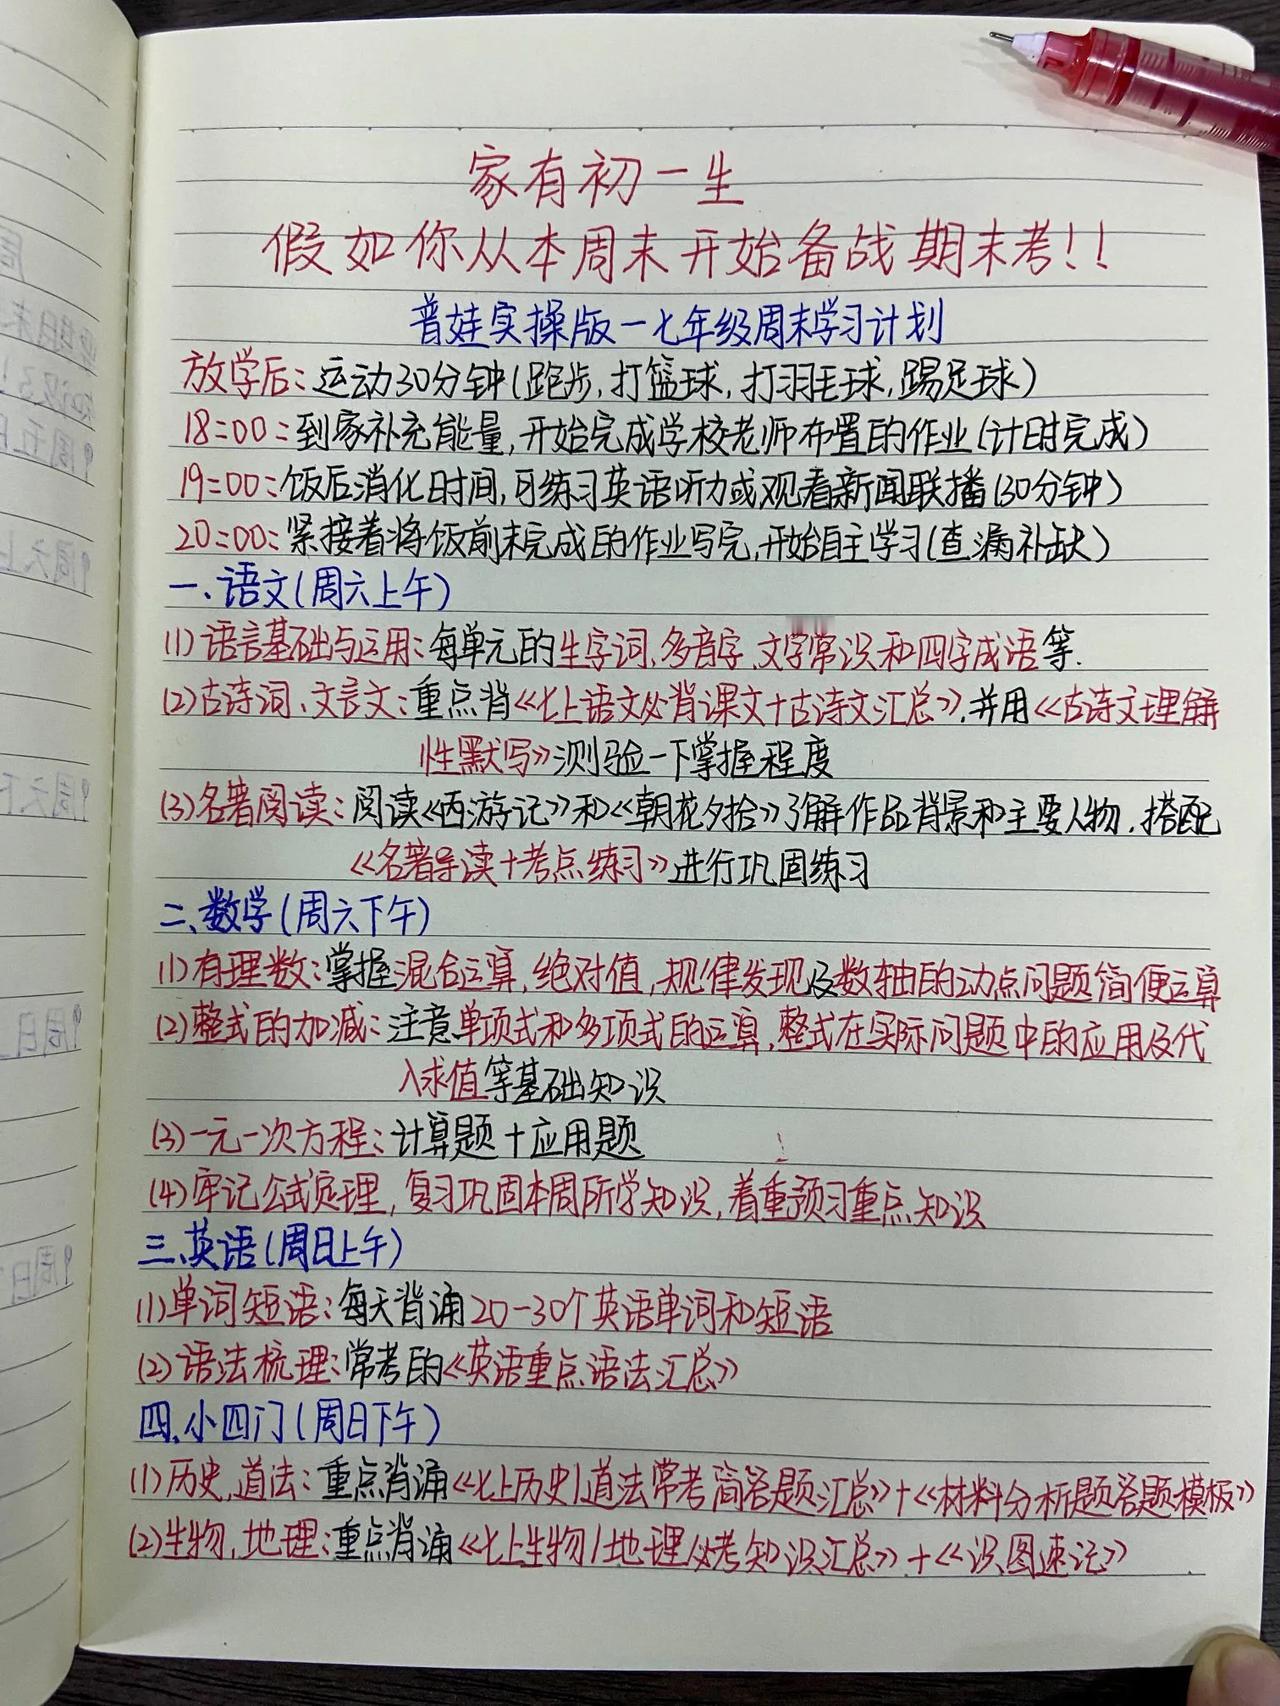 家有初一生
假如你从本周末开始备战期末考!!
普娃实操版一七年级周末学习计划
放学后:运动30分钟(跑步,打篮球,打羽毛球,踢足球)
18:00:到家补充能量,开始完成学校老师布置的作业(计时完成)
19:00:饭后消化时间,可练习英语听力或观看新闻联播(30分钟)
20:00:紧接着将饭前未完成的作业写完,开始自主学习(查漏补缺)
一、语文(周六上午)
(1)语言基础与运用:每单元的生字词、多音字、文学常识和四字成语等.
(2)古诗词、文言文:重点背《七上语文必背课文+古诗文汇总》,并用《古诗文理解
性默写》测验一下掌握程度
(3)名著阅读:阅读《西游记》和《朝花夕拾》了解作品背景和主要人物,搭配
《名著导读+考点练习》进行巩固练习
二、数学(周六下午)
(1)有理数:掌握混合运算,绝对值,规律发现及数轴的动点问题简便运算
(2)整式的加减:注意单项式和多项式的运算,整式在实际问题中的应用及代
入求值等基础知识
(3)一元一次方程:计算题+应用题
(4)牢记公式定理,复习巩固本周所学知识,着重预习重点知识
三、英语(周日上午)
(1)单词短语:每天背诵20-30个英语单词和短语
(2)语法梳理:常考的《英语重点语法汇总》
四、小四门(周日下午)
(1)历史,道法:重点背诵《七上历史/道法常考简答题汇总》+《材料分析题答题模板》
(2)生物,地理:重点背诵《七上生物/地理必考知识汇总》+《识图速记》